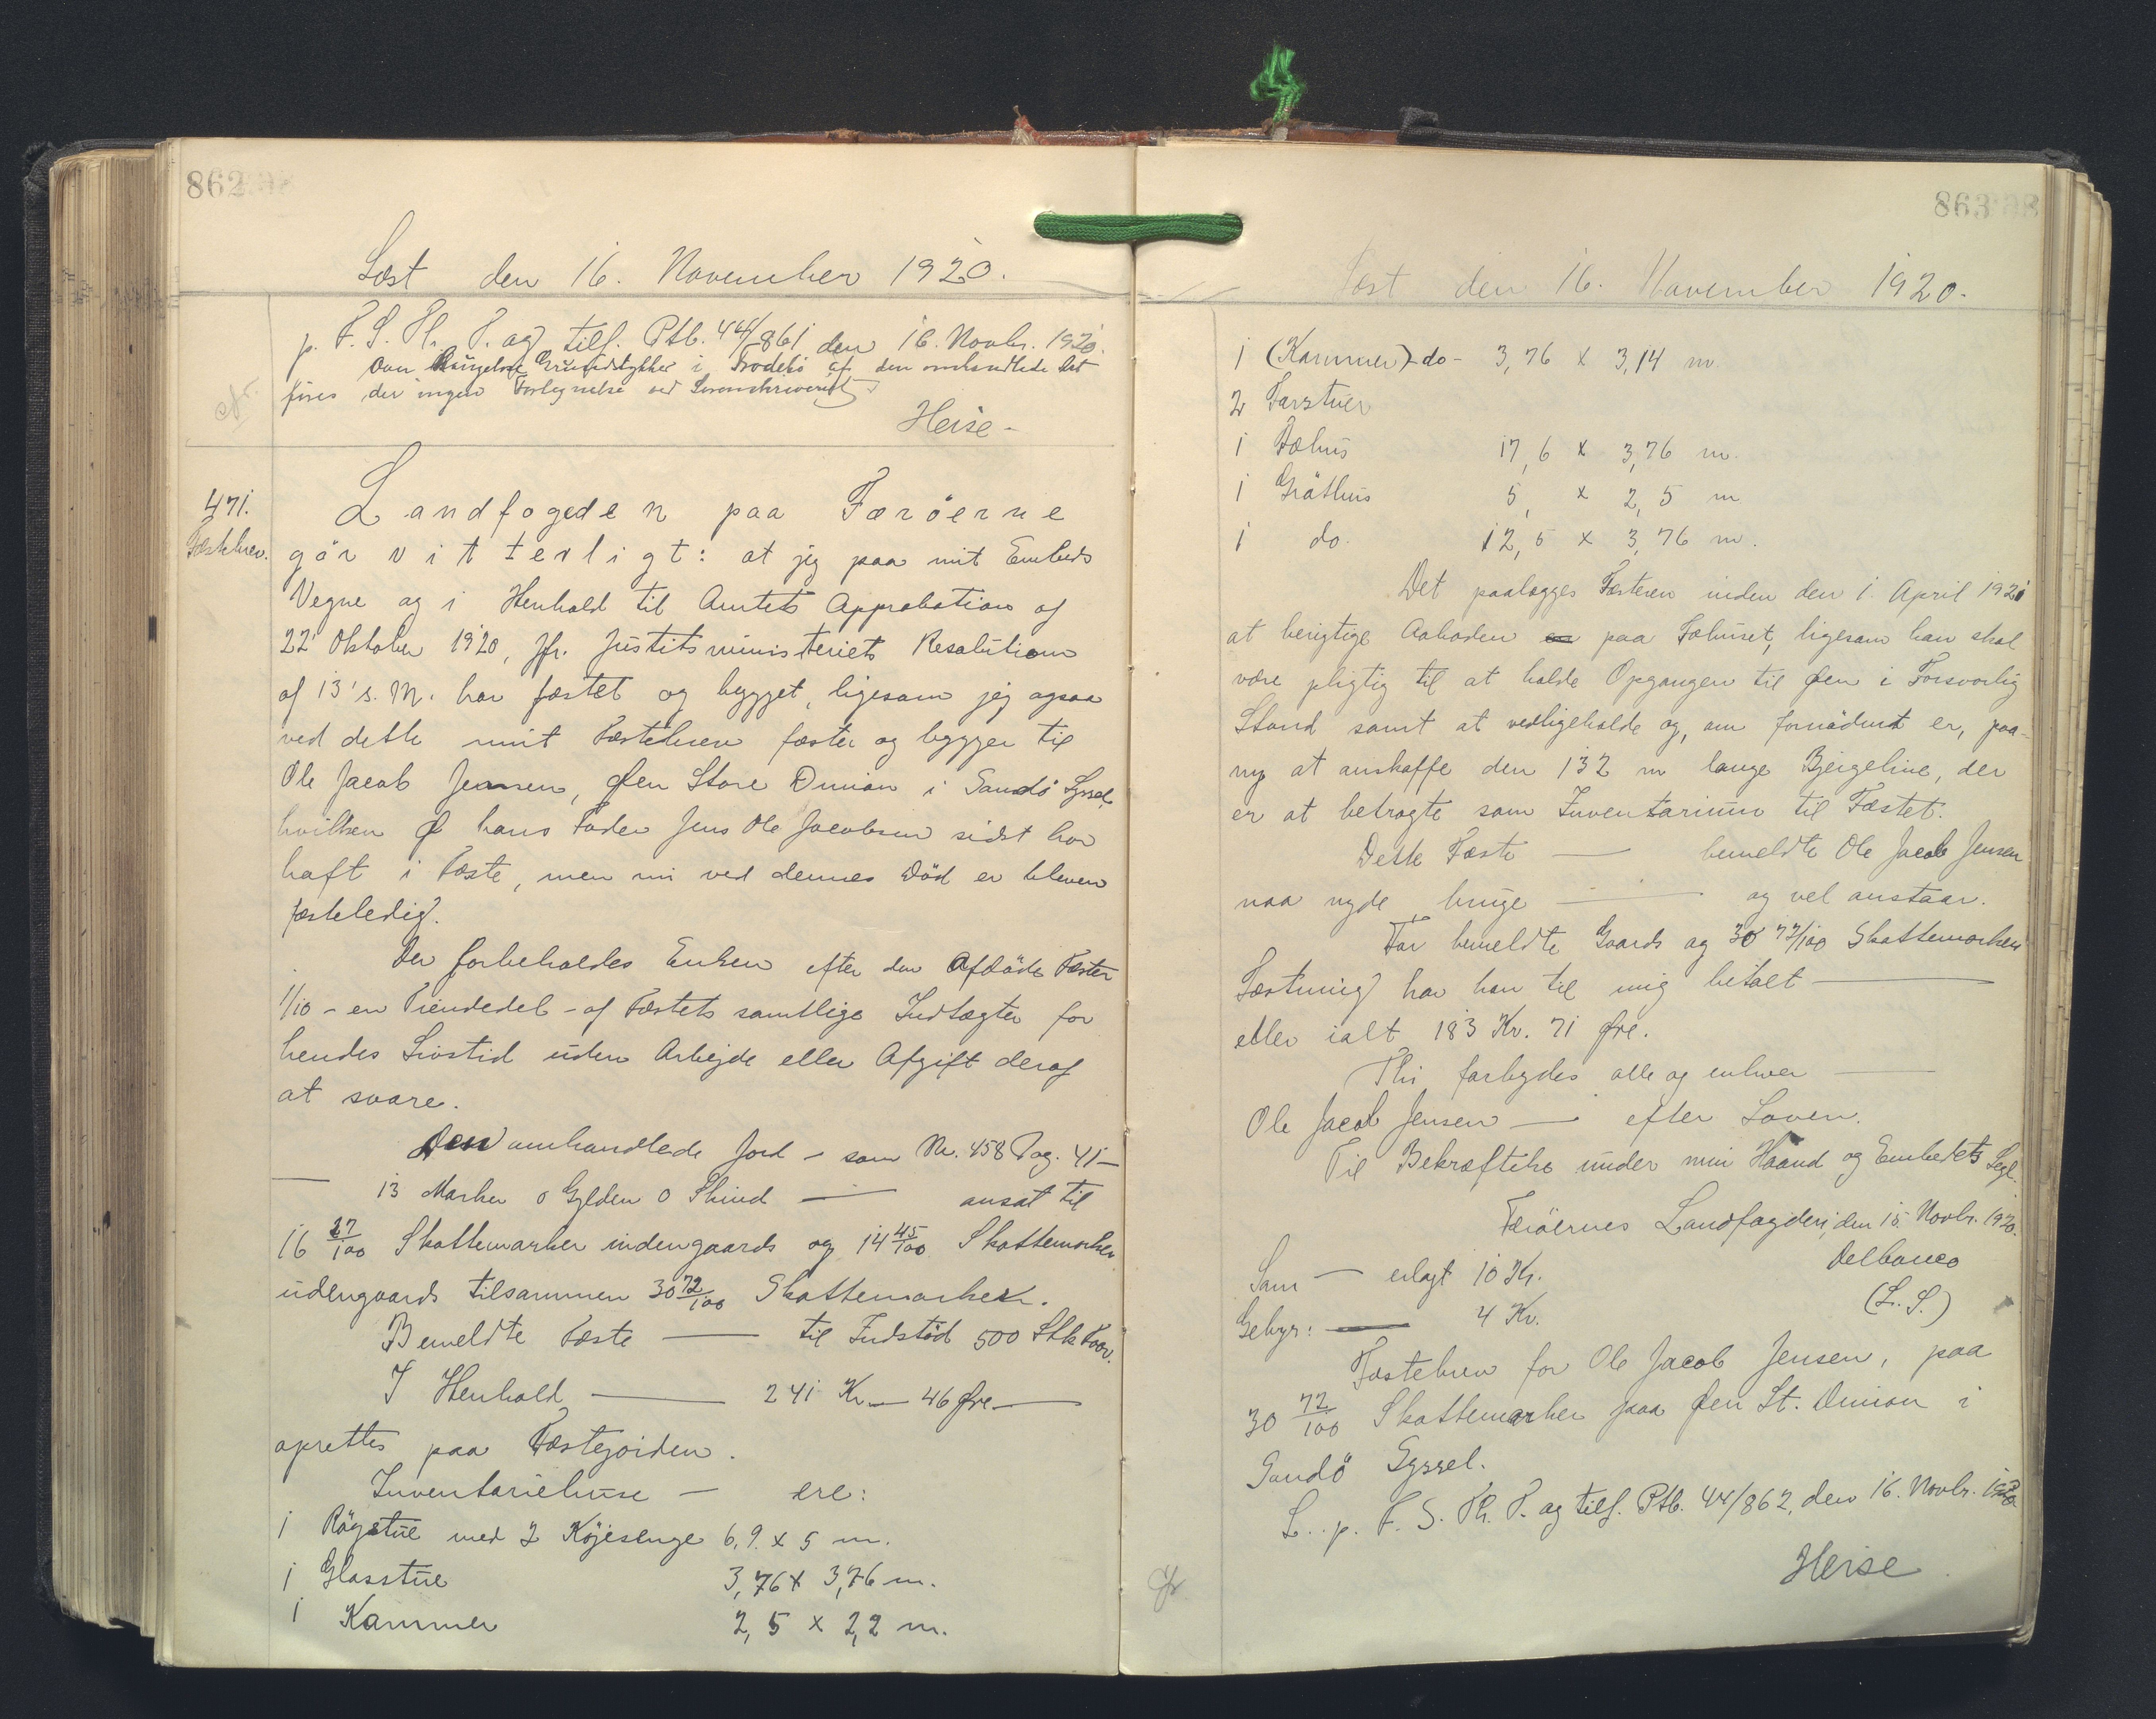 862
Læst den 16. November 1920.
p. F. S. Th. P. og tilf. Ptb. 44/861 den 16. Novbr. 1920.
Om Grundstykker i Trodebö af den omhandlede Lot
fires der ingen Fortegnelse ved Sorenskriveriet
Heise-
cfr.
471.
Fæstebrev.
Landfogeden paa Færöerne
gör vitterligt: at jeg paa mit Embeds
Vegne og i Henhold til Amtets Approbation af
22' Oktober 1920, jfr. Justitsministeriets Resolution
af 13' s. M. har fæstet og bygget, ligesom jeg ogsaa
ved dette mit Fæstebrev fæster og bygger til
Ole Jacob Jensen, Øen Store Dimon i Sandö Syssel,
hvilken Ø hans Fader Jens Ole Jacobsen sidst har
haft i Fæste, men nu ved dennes Död er bleven
fæsteledig.
Der forbeholdes Enken efter den Afdöde Fæster
1/10 - en Tiendedel - af Fæstets samtlige Indtægter for
hendes Livstid uden Arbejde eller Afgift deraf
at svare.
Den omhandlede Jord - som Nr. 458 Pag. 41 -
— 13 Marker 0 Gylden 0 Skind — ansat til
16 27/100 Skattemarker indengaards og 14 45/100 Skattemarker
udengaards tilsammen 30 72/100 Skattemarker.
Bemeldte Fæste — til Indstöd 500 Stk Faar.
I Henhold — 241 Kr — 46 Øre —
oprettes paa Fæstejorden.
Inventariehuse — ere:
1 Rögstue med 2 Köjesenge 6,9 x 5 m.
1 Glasstue 3,76 x 3,76 m.
1 Kammer 2,5 x 2,2 m.
863
Læst den 16. November 1920.
1 (Kammer) -do- 3,76 x 3,14 m
2 Forstuer
1 Fæhus 17,6 x 3,76 m.
1 Gröthus 5, x 2,5 m
1 do. 12,5 x 3,76 m.
Det paalægges Fæsteren inden den 1. April 1921
at berigtige Aaboden paa Fæhuset, ligesom han skal
være pligtig til at holde Opgangen til Øen i Forsvarlig
Stand samt at vedligeholde og, om fornödent er, paa-
ny at anskaffe den 132 m lange Bjergeline, der
er at betragte som Inventarium til Fæstet.
Dette Fæste — bemeldte Ole Jacob Jensen
maa nyde bruge — og vel anstaar.
For bemeldte Gaards og 30 72/100 Skattemarken
Fæstning har han til mig betalt —
eller ialt 183 Kr. 71 Øre.
Thi forbydes alle og enhver —
Ole Jacob Jensen — efter Loven.
Til Bekræftelse under min Haand og Embedets Segl.
Færöernes Landfogderi, den 15. Novbr. 1920.
Delbanco
(L. S.)
Sam — erlagt 10 Kr.
Gebyr: — 4 Kr.
Fæstebrev for Ole Jacob Jensen, paa
30 72/100 Skattemarker paa Øen St. Dimon i
Sandö Syssel.
L. p. F. S. Th. P. og tilf. Ptb. 44/862, den 16. Novbr. 1920
Heise
cfr